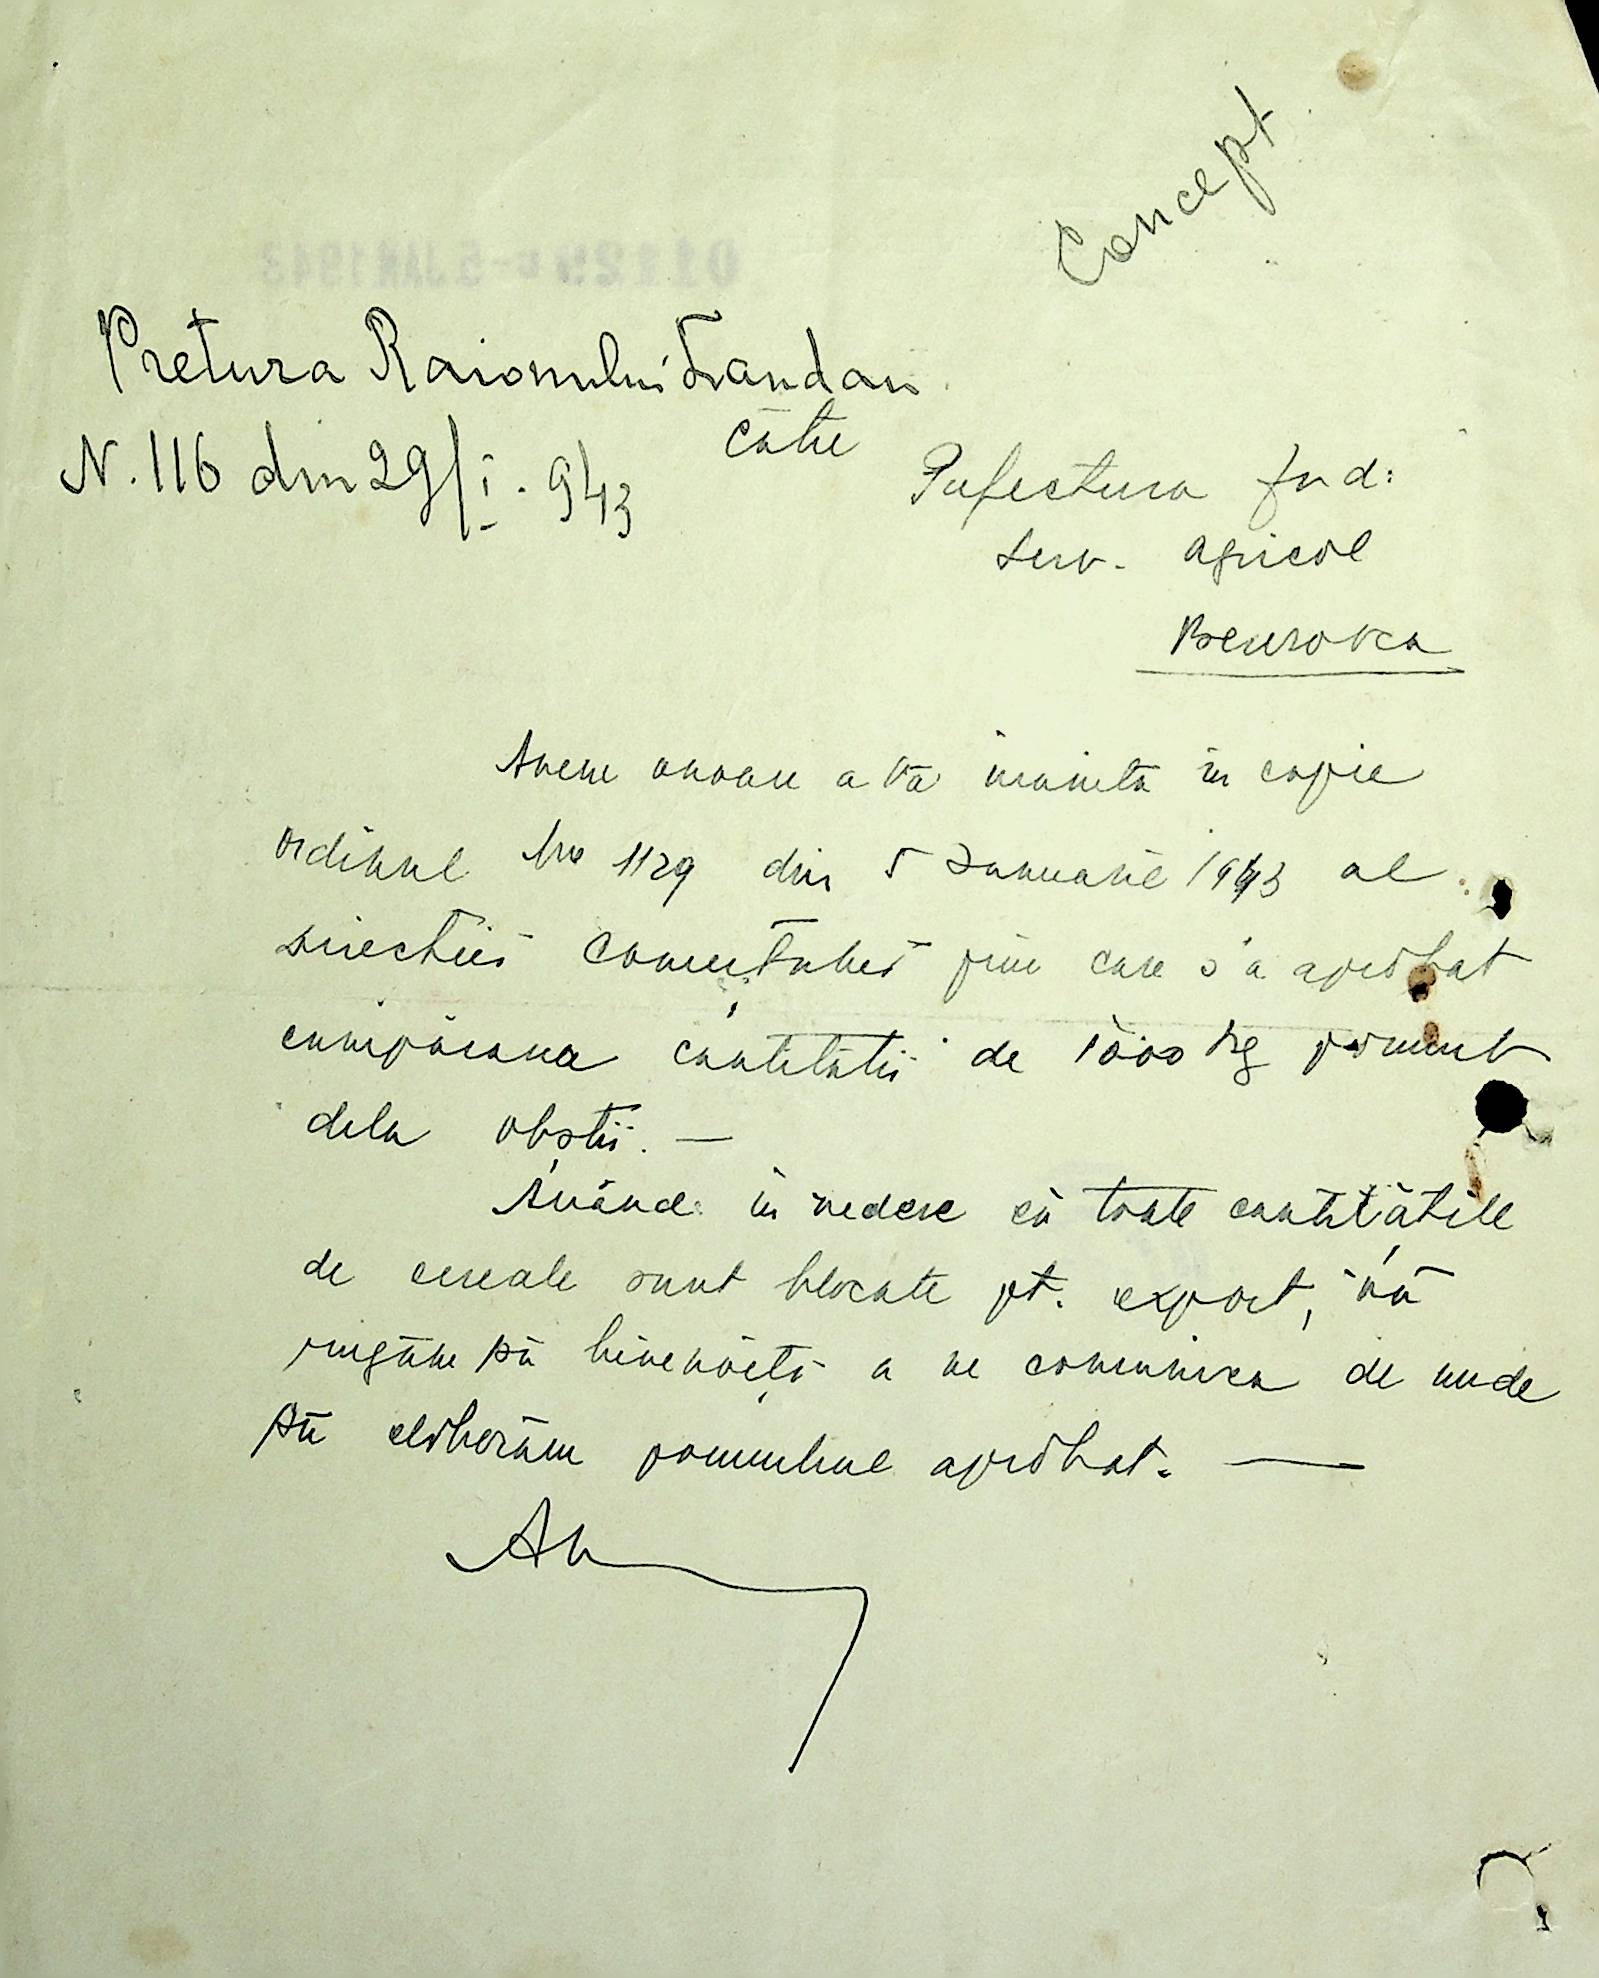 Concept
Pretura Raionului Landau
N. 116 din 29/I. 943
către
Prefectura Jud:
Serv. agricol
Berezovca
Avem onoare a vă înainta în copie
ordinul Nro 1129 din 5 Ianuarie 1943 al
direcției comerțului prin care s'a aprobat
cumpărarea cantității de 1000 kg porumb
dela obștii. —
Având în vedere că toate cantitățile
de cereale sunt blocate pt. export, vă
rugăm să binevoiți a ne comunica de unde
să eliberăm porumbul aprobat. —